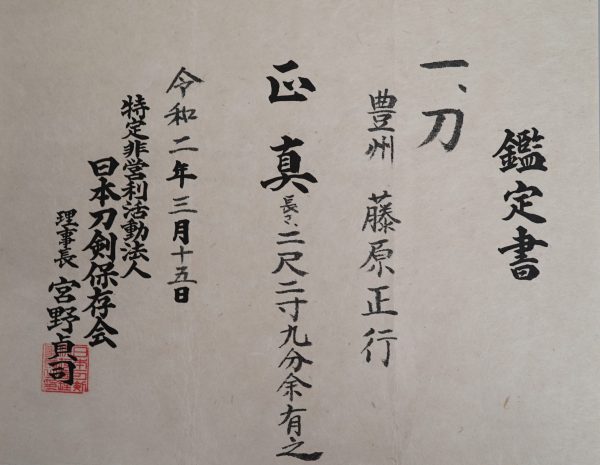 鑑定書
一、刀
豊州 藤原正行
正真 長サ、二尺二寸九分余有之
令和二年三月十五日
特定非営利活動法人
日本刀剣保存会
理事長 宮野貞司